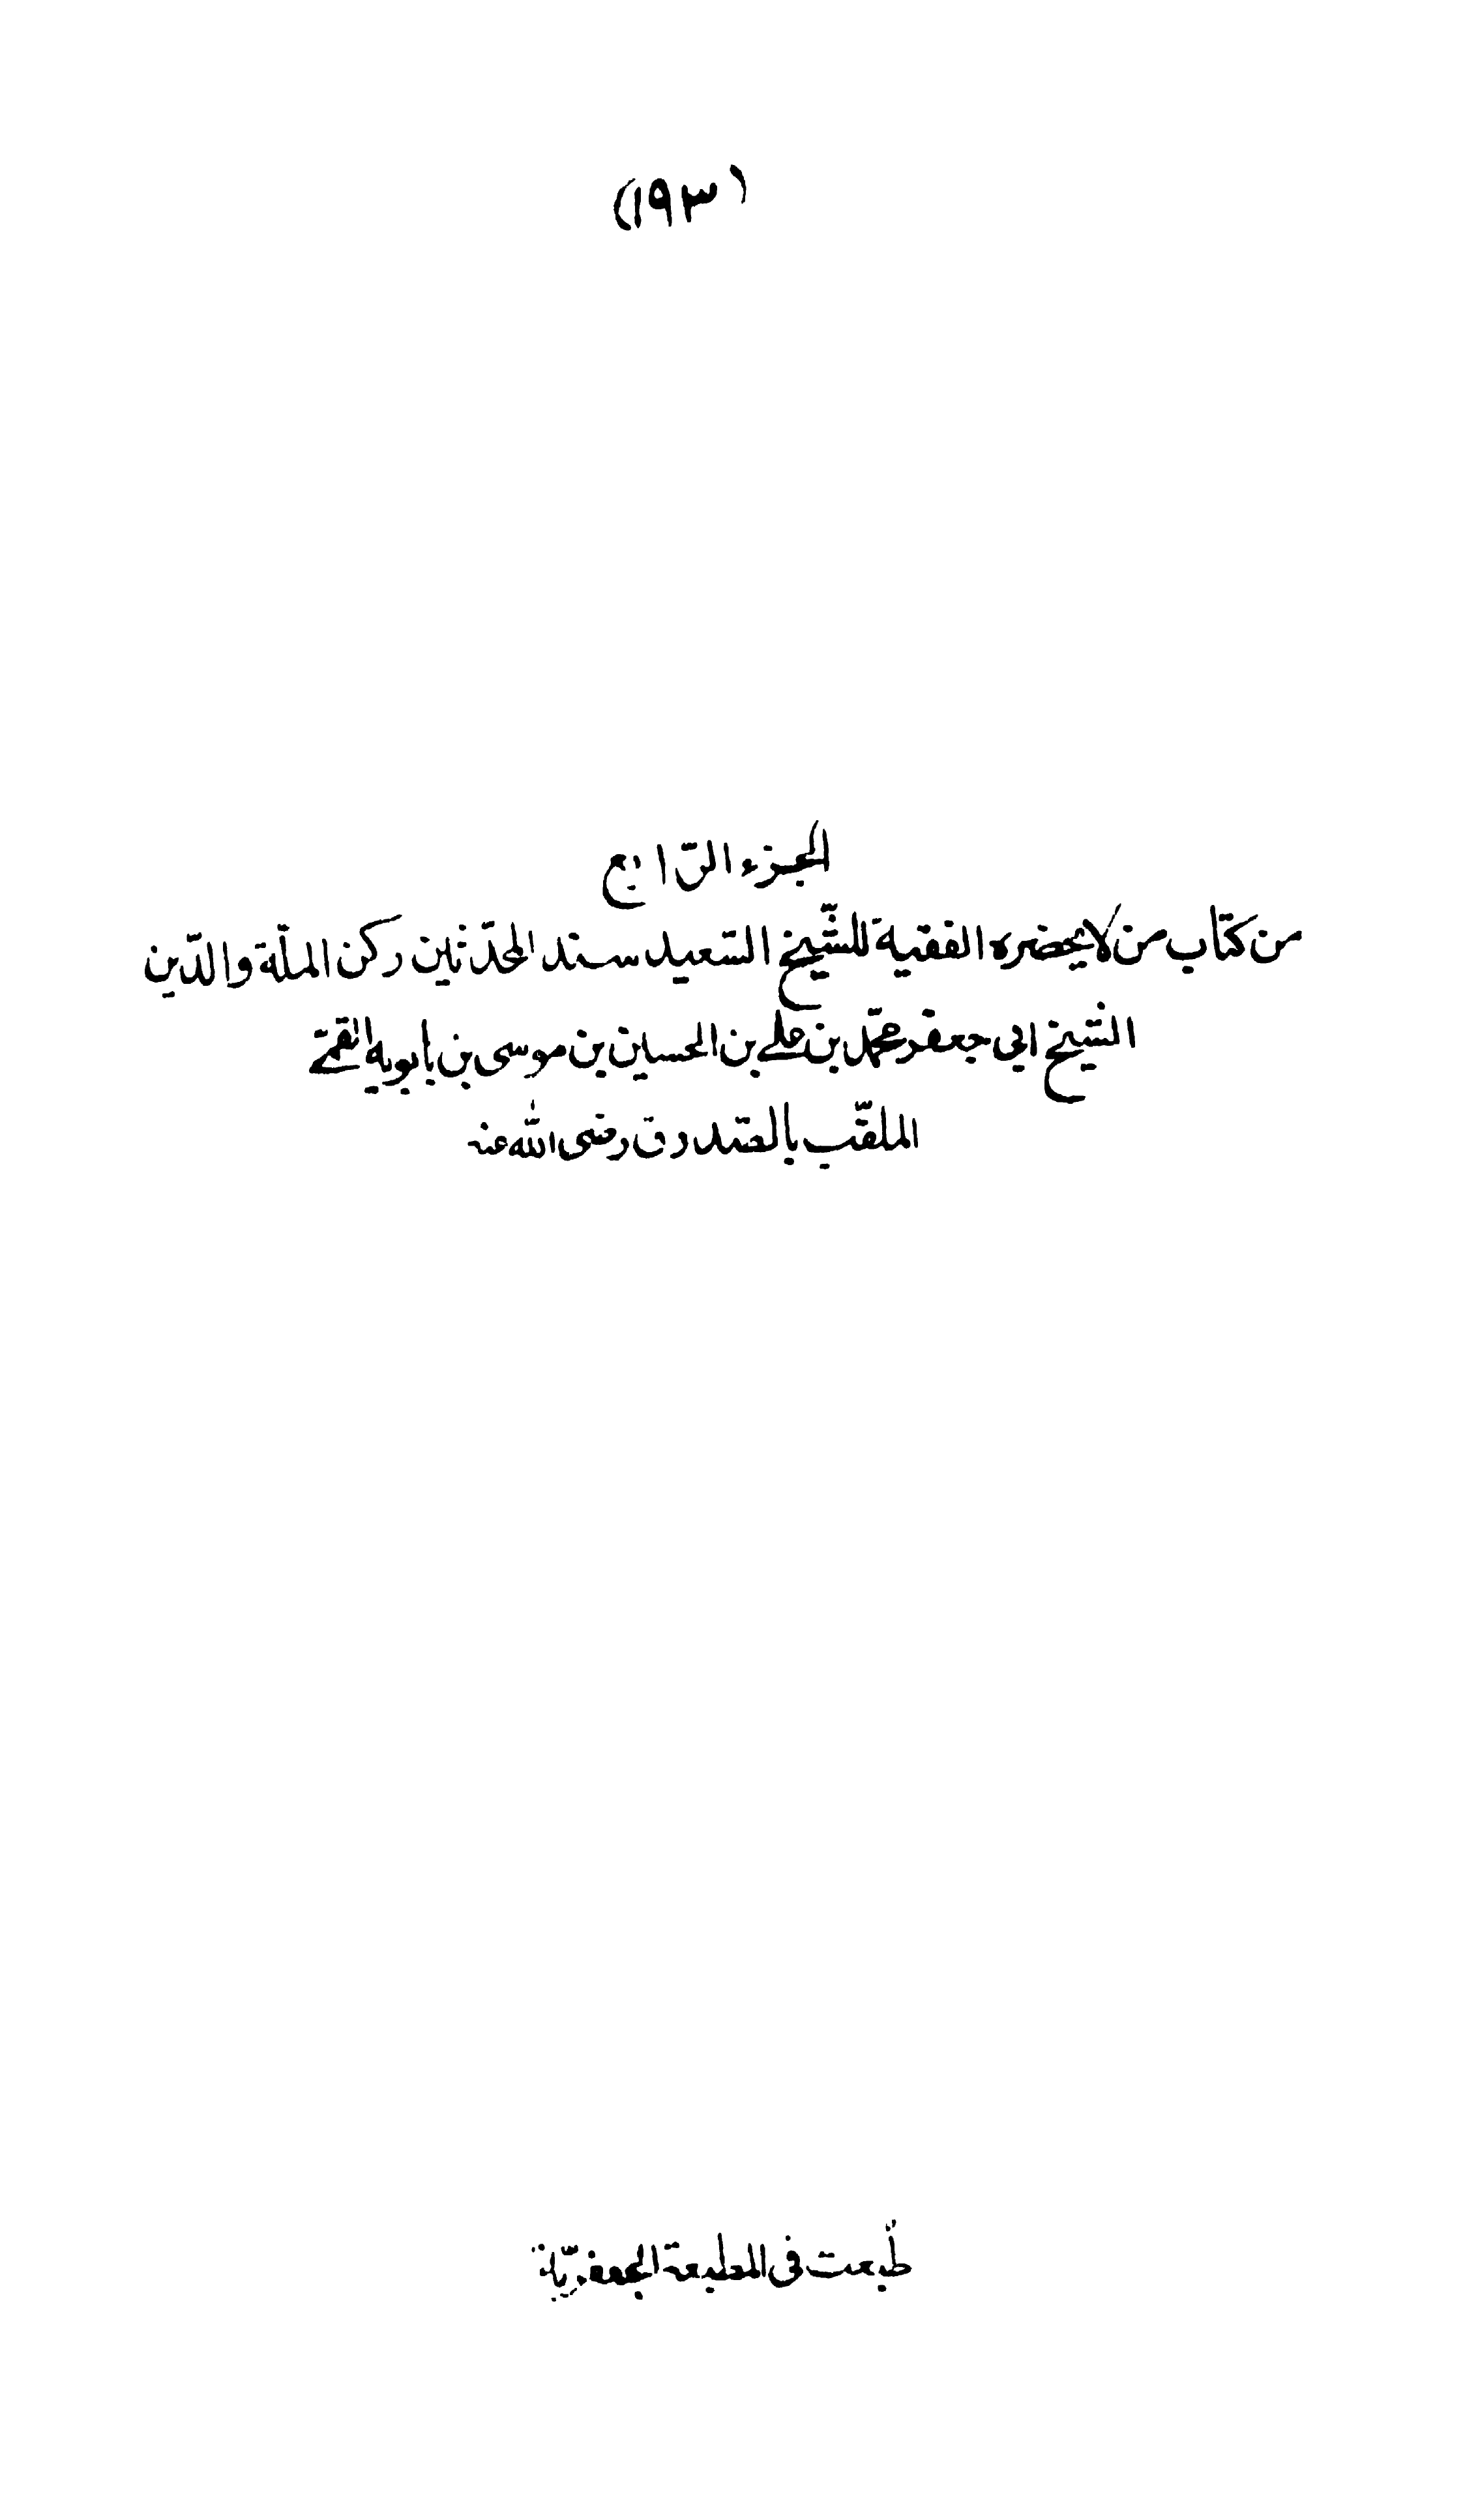 (١٩٣)
الجزء الرّابع
من كتاب من لا يحضره الفقيه للشّيخ السّعيد سند المحدّثين ركن الملّة و الدّين
الشّيخ ابى جعفر محمّد بن علىّ بن الحسين بن موسى بن بابويه القمّى
الملقّب بالصّدوق رضى اللّه عنه
طُبعت فى المطبعة الجعفريّة